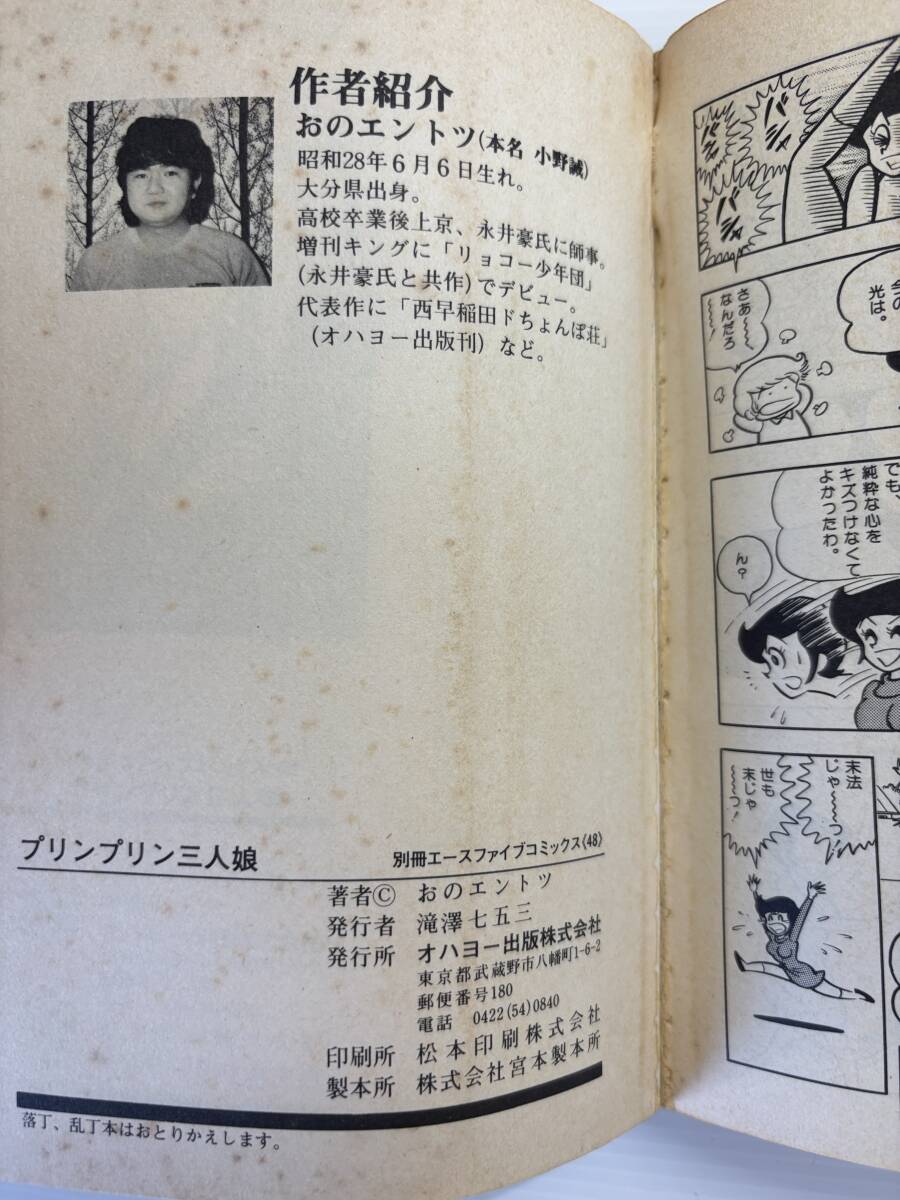 作者紹介
おのエントツ(本名 小野誠)
昭和28年6月6日生れ。
大分県出身。
高校卒業後上京、永井豪氏に師事。
増刊キングに「リョコー少年団」
(永井豪氏と共作)でデビュー。
代表作に「西早稲田ドちょんぼ荘」
(オハヨー出版刊)など。
プリンプリン三人娘
別冊エースファイブコミックス〈48〉
著者© おのエントツ
発行者 滝澤七五三
発行所 オハヨー出版株式会社
東京都武蔵野市八幡町1-6-2
郵便番号180
電話 0422(54)0840
印刷所 松本印刷株式会社
製本所 株式会社宮本製本所
落丁、乱丁本はおとりかえします。
バシャ
バシャ
バシャ
光は。
さあ〜〜、
なんだろ
〜〜!
でも、
純粋な心を
キズつけなくて
よかったわ。
ん?
末法
じゃ〜〜っ
世も
末じゃ
〜〜っ!